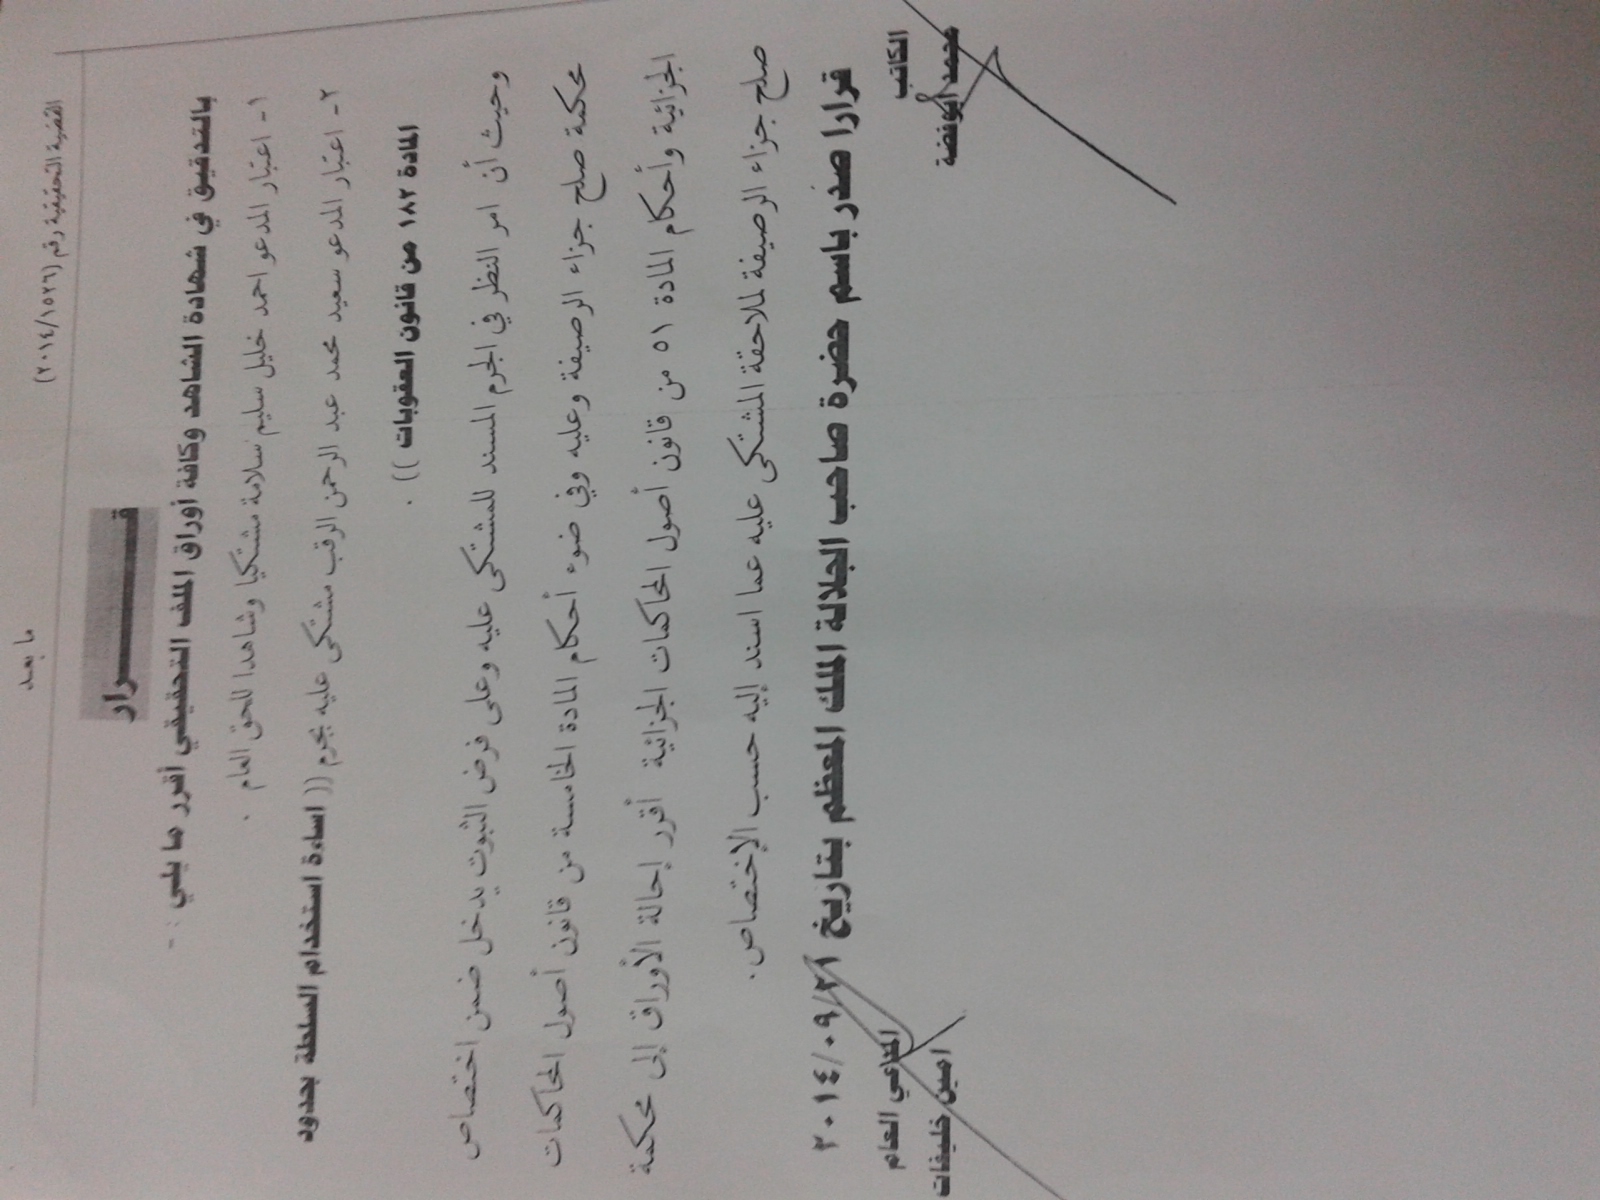 ما بعد
القضية التحقيقية رقم (٢٠١٤/١٥٢٦)
قــــــرار
بالتدقيق في شهادة الشاهد وكافة أوراق الملف التحقيقي أقرر ما يلي :-
١- اعتبار المدعو احمد خليل سليم سلامة مشتكيا وشاهدا للحق العام .
٢- اعتبار المدعو سعيد محمد عبد الرحمن الرقب مشتكى عليه بجرم (( اساءة استخدام السلطة بحدود
المادة ١٨٢ من قانون العقوبات )) .
وحيث أن امر النظر في الجرم المسند للمشتكى عليه وعلى فرض الثبوت يدخل ضمن اختصاص
محكمة صلح جزاء الرصيفة وعليه وفي ضوء أحكام المادة الخامسة من قانون أصول المحاكمات
الجزائية وأحكام المادة ٥١ من قانون أصول المحاكمات الجزائية أقرر إحالة الأوراق إلى محكمة
صلح جزاء الرصيفة لملاحقة المشتكى عليه عما اسند إليه حسب الإختصاص.
قرارا صدر باسم حضرة صاحب الجلالة الملك المعظم بتاريخ ٢٠١٤/٠٩/٢١
الكاتب المدعي العام
محمد ابوفضة امين خليفات